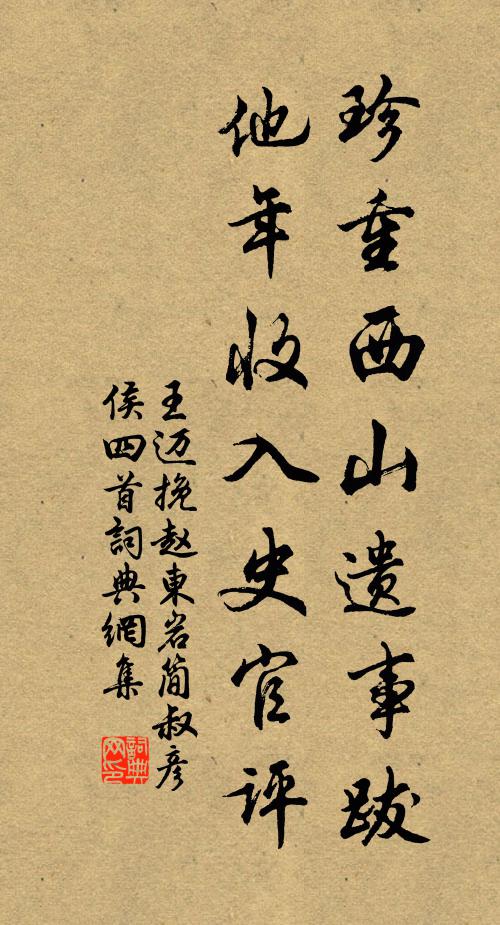 珍重西山遗事跋
他年收入史官评
王迈挽赵東岩简叔彦
侯四首詞典網集
詞典网印